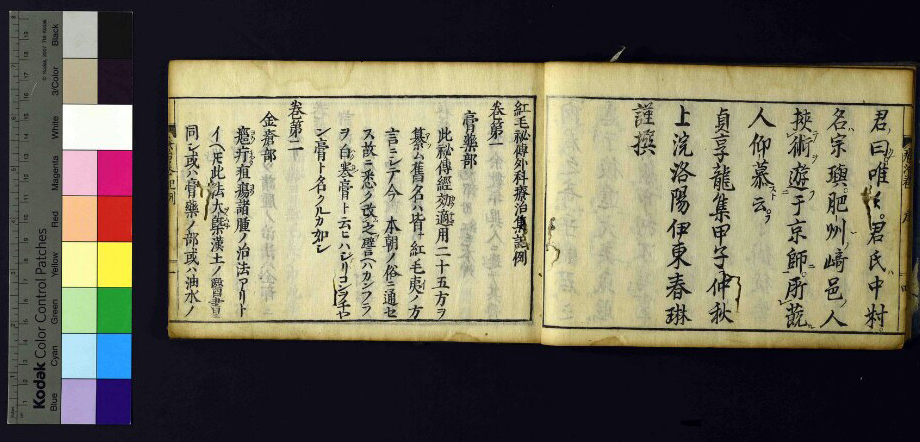 君曰唯々君氏中村
名宗璵肥州﨑邑人
挾術遊于京師所
人仰慕云
貞享龍集甲子仲秋
上浣洛陽伊東春琳
謹撰
紅毛祕傳外科療治集凡例
卷第一
膏藥部
此祕傳經効適用二十五方ヲ
纂ム舊名ハ皆紅毛夷ノ方
言ニシテ今本朝ノ俗ニ通セ
ス故ニ悉ク改之譬ハカンフラ
ヲ白膏ト云ヒハシリコンヲ
ン膏ト名クルカ如シ
卷第二
金瘡部
癰疔疽瘍諸腫ノ治法アリト
イヘ𪜈此法大槩漢土ノ醫書
同シ或ハ膏藥ノ部或ハ油水ノ
Kodak Color Control Patches
© Kodak, 2007 TM: Kodak
Blue
Cyan
Green
Yellow
Red
Magenta
White
3/Color
Black